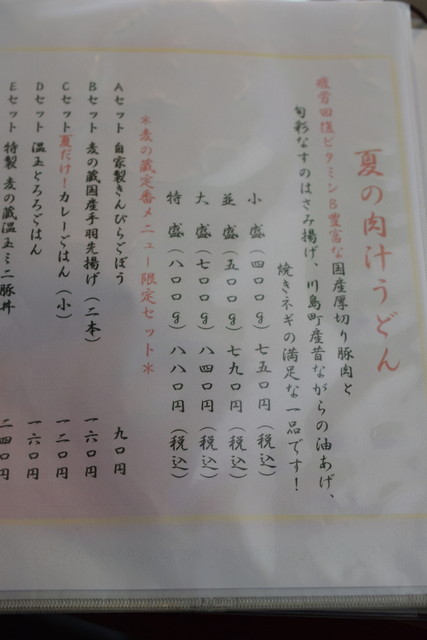 夏の肉汁うどん
疲労回復ビタミンB豊富な国産厚切り豚肉と
旬彩なすのはさみ揚げ、川島町産昔ながらの油あげ、
焼きネギの満足な一品です!
小 盛(四〇〇g)七五〇円(税込)
並 盛(五〇〇g)七九〇円(税込)
大 盛(七〇〇g)八四〇円(税込)
特 盛(八〇〇g)八八〇円(税込)
*麦の蔵定番メニュー限定セット*
Aセット 自家製きんぴらごぼう 九〇円
Bセット 麦の蔵国産手羽先揚げ(二本) 一六〇円
Cセット 夏だけ!カレーごはん(小) 一二〇円
Dセット 温玉とろろごはん 一六〇円
Eセット 特製 麦の蔵温玉ミニ豚丼 二四〇円